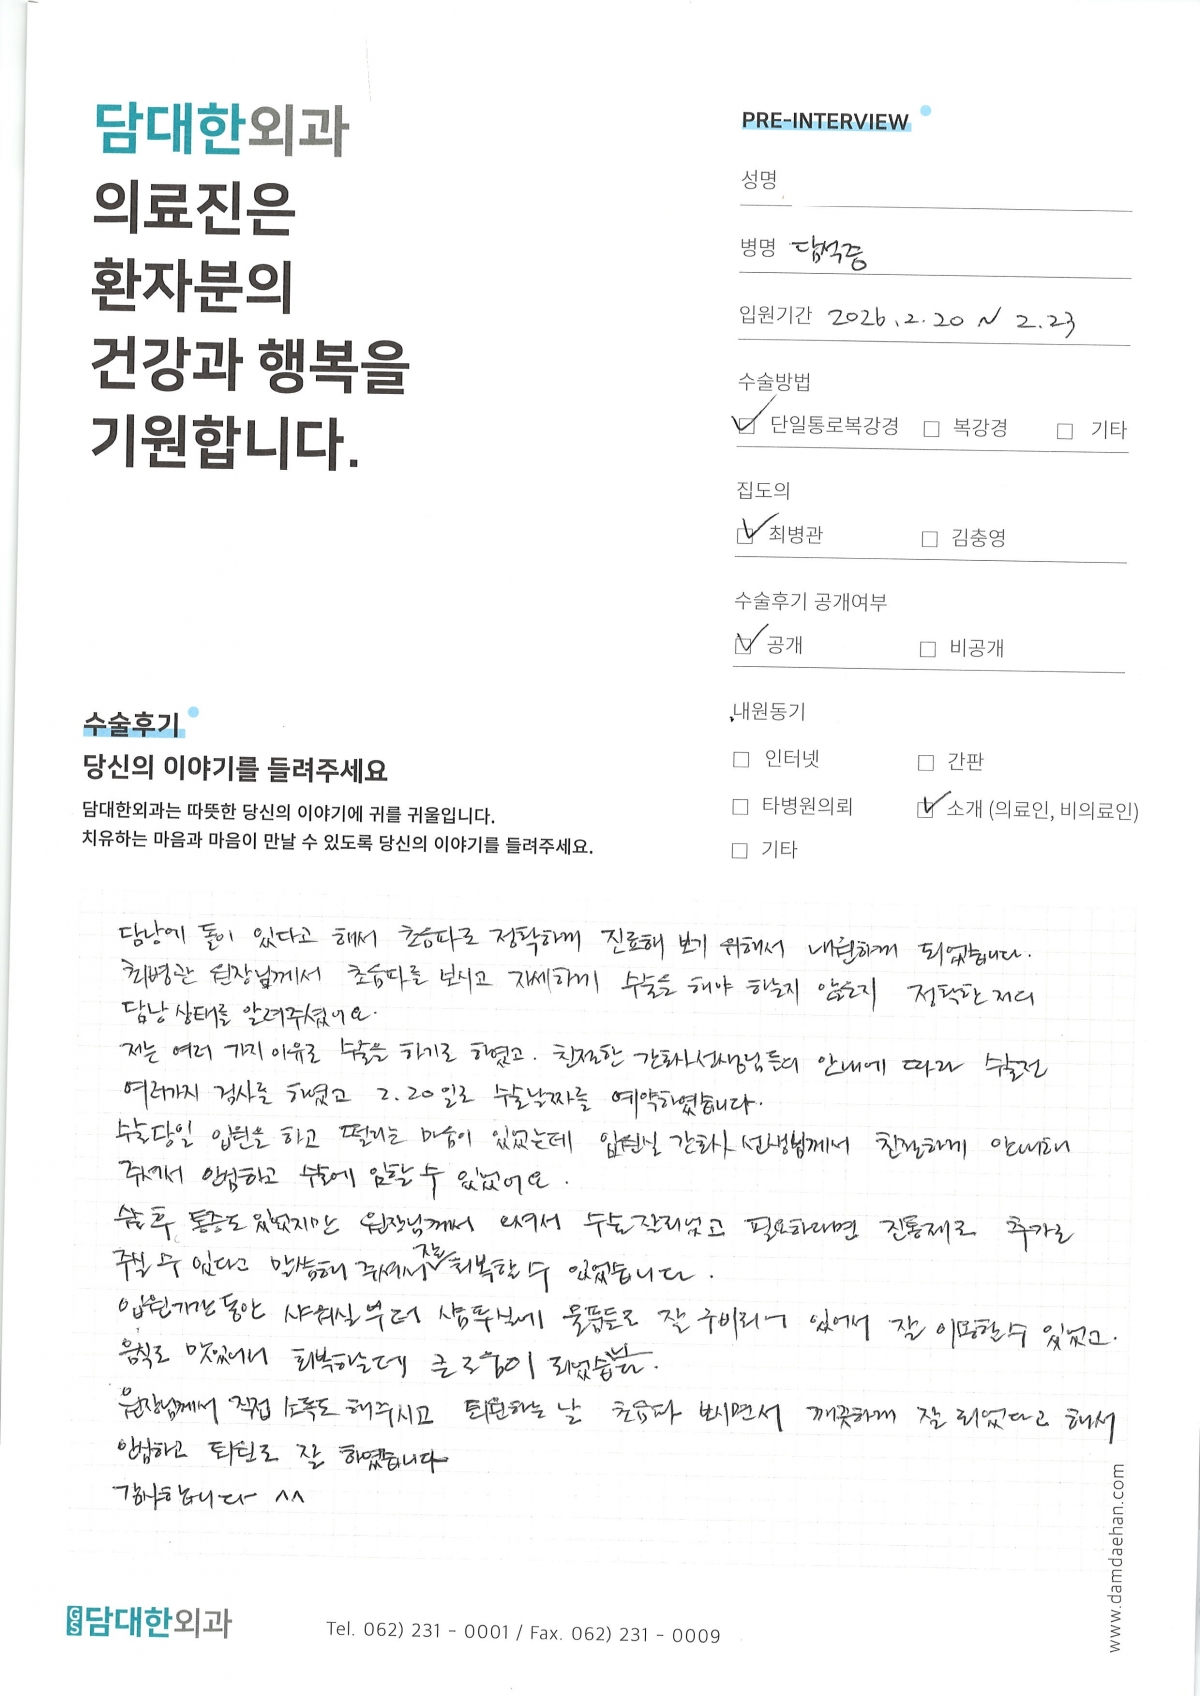 담대한외과
의료진은
환자분의
건강과 행복을
기원합니다.
PRE-INTERVIEW
성명
병명 담석증
입원기간 2026.2.20 ~ 2.23
수술방법
단일통로복강경 복강경 기타
집도의
최병관 김충영
수술후기 공개여부
공개 비공개
내원동기
인터넷 간판
타병원의뢰 소개 (의료인, 비의료인)
기타
수술후기
당신의 이야기를 들려주세요
담대한외과는 따뜻한 당신의 이야기에 귀를 귀울입니다.
치유하는 마음과 마음이 만날 수 있도록 당신의 이야기를 들려주세요.
담낭에 돌이 있다고 해서 초음파로 정확하게 진료해 보기 위해서 내원하게 되었습니다.
최병관 원장님께서 초음파를 보시고 자세하게 수술을 해야 하는지 않는지 정확한 저의
담낭 상태를 알려주셨어요.
저는 여러 가지 이유로 수술을 하기로 하였고. 친절한 간호사 선생님들의 안내에 따라 수술전
여러가지 검사를 하였고 2.20일로 수술날짜를 예약하였습니다.
수술당일 입원을 하고 떨리는 마음이 있었는데 입원실 간호사 선생님께서 친절하게 안내해
주셔서 안심하고 수술에 임할 수 있었어요.
수술 후 통증도 있었지만 원장님께서 오셔서 수술 잘되었고 필요하다면 진통제로 추가로
주실 수 있다고 말씀해 주셔서 잘 회복할 수 있었습니다.
입원기간 동안 샤워실부터 샴푸실에 물품들로 잘 구비되어 있어서 잘 이용할 수 있었고.
음식도 맛있어서 회복하는데 큰 도움이 되었습니다.
원장님께서 직접 소독도 해주시고 퇴원하는 날 초음파 보시면서 깨끗하게 잘 되었다고 해서
안심하고 퇴원도 잘 하였습니다
감사합니다 ^^
GS 담대한외과
Tel. 062) 231 - 0001 / Fax. 062) 231 - 0009
www.damdaehan.com